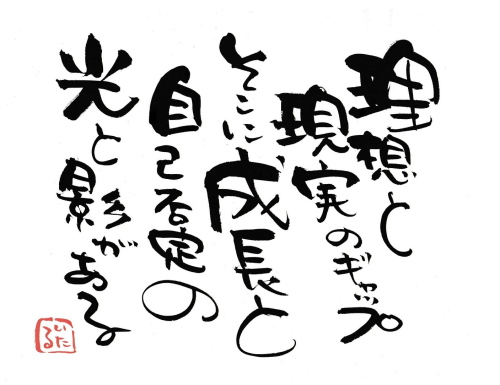 理想と
現実のギャップ
そこに成長と
自己否定の
光と影がある
いたる